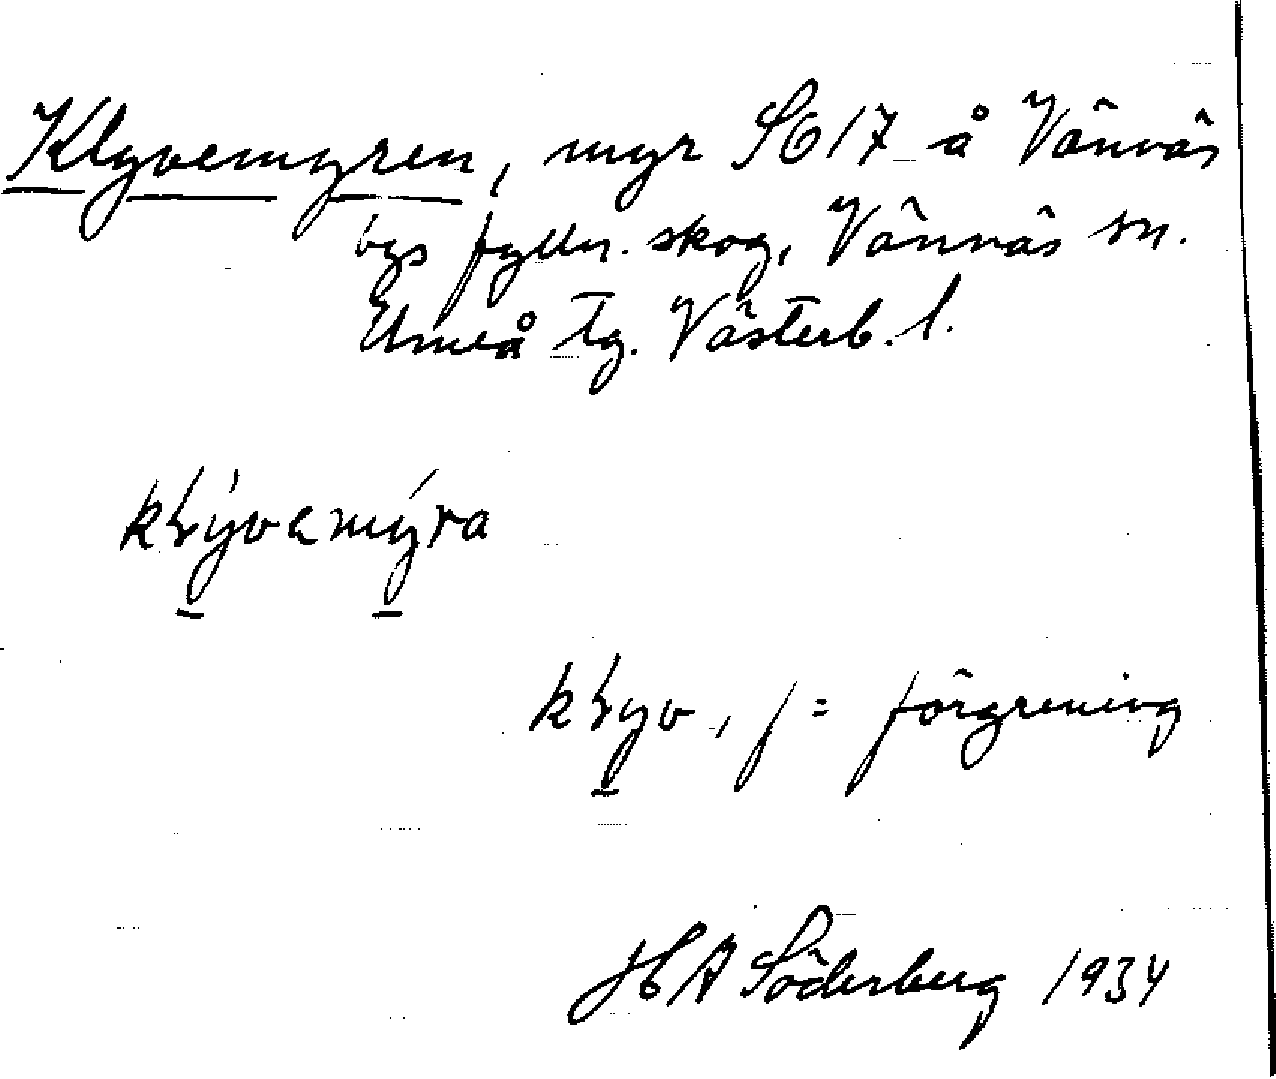 Klyvemyren, myr SO 17 å Vännäs
bys fylln. skog, Vännäs sn.
Umeå tg. Västerb. l.
kƚývemýra
kƚyv, f = förgrening
H A Söderberg 1934